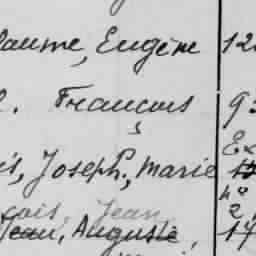 laume, Eugène 12
. François 9
is, Joseph, Marie
çois, Jean, 2
Jean, Auguste, 17